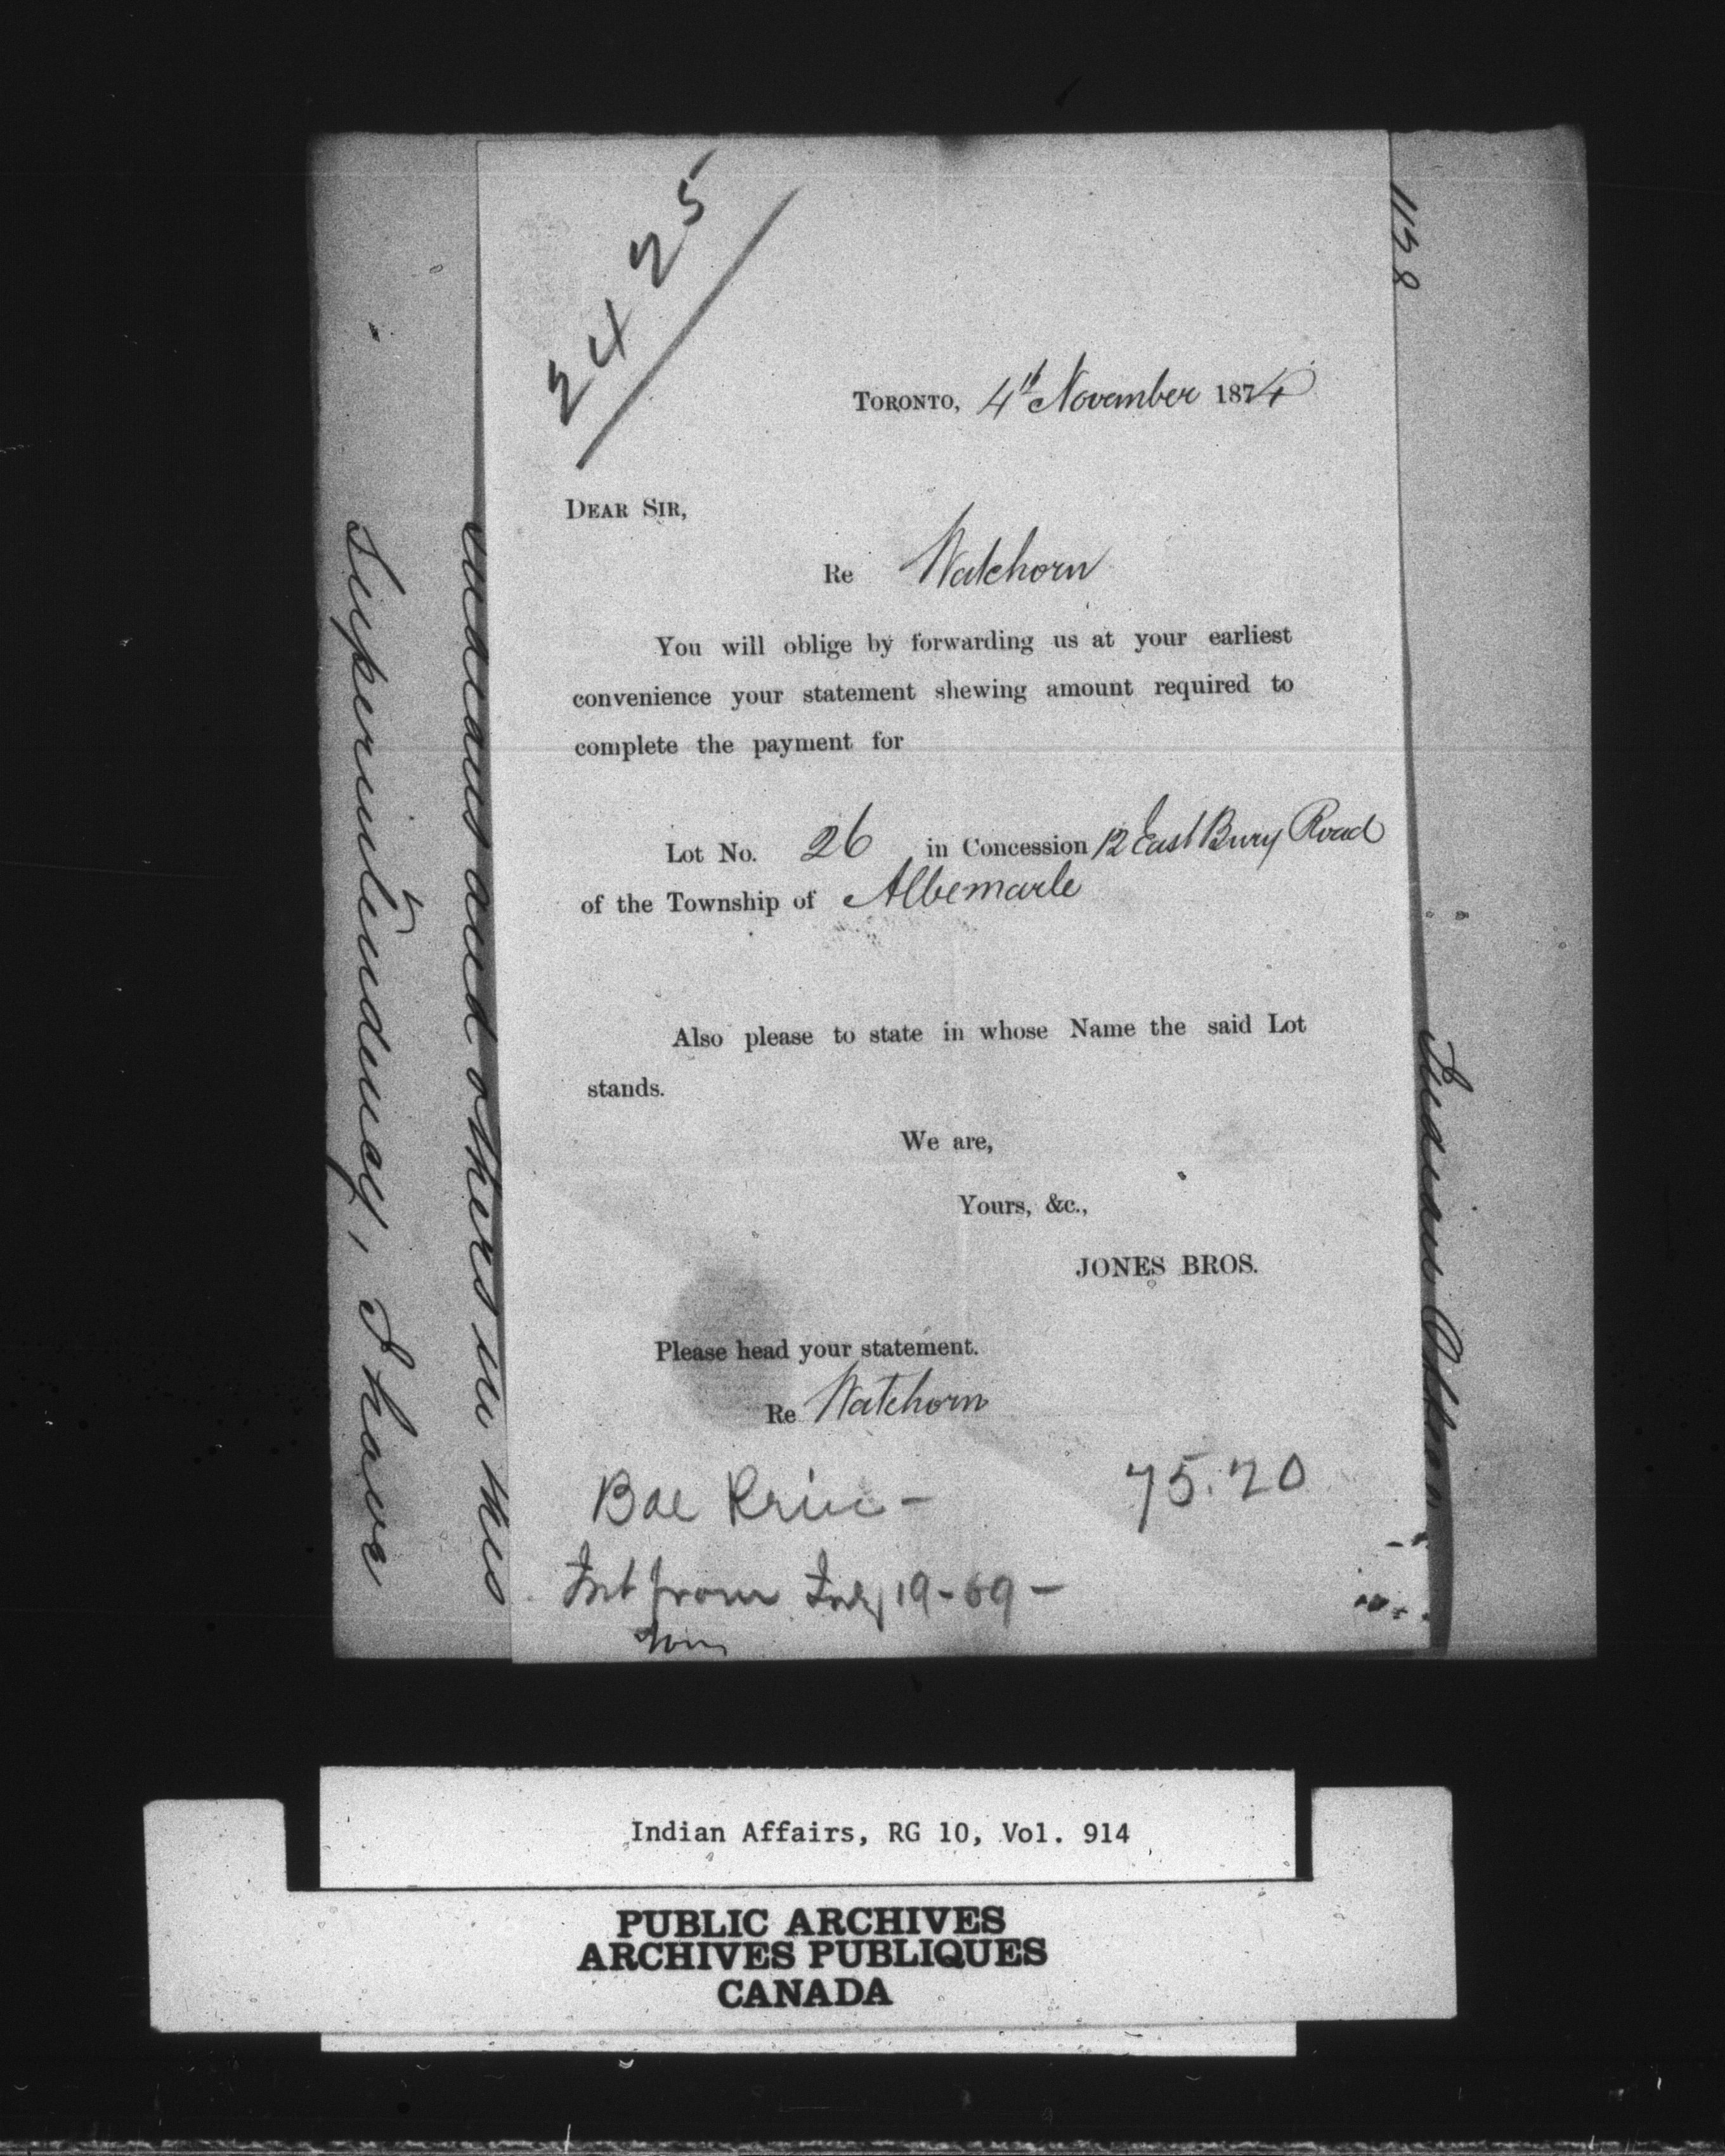 2425
1158
TORONTO, 4th November 1874
DEAR SIR,
Re Watchorn
You will oblige by forwarding us at your earliest
convenience your statement shewing amount required to
complete the payment for
Lot No. 26 in Concession 12 East Bury Road
of the Township of Albemarle
Also please to state in whose Name the said Lot
stands.
We are,
Yours, &c.,
JONES BROS.
Please head your statement.
Re Watchorn
Bal Prin - 75.20
Int from July 19-69 -
Indians and others in this
Superintendency, I have
Indian Office
Indian Affairs, RG 10, Vol. 914
PUBLIC ARCHIVES
ARCHIVES PUBLIQUES
CANADA